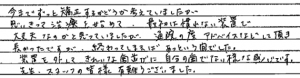 今までずっと矯正するかどうか考えていましたが
思いきって治療を始めて 最初は慣れない装置で
大丈夫なのかと思っていましたが、通院の度アドバイスなどして頂き
良かったですが、終わってしまえばあっという間でした。
装置を外して きれいな歯並びに自分の歯でない様な感じです。
先生、スタッフの皆様 有難うございました。